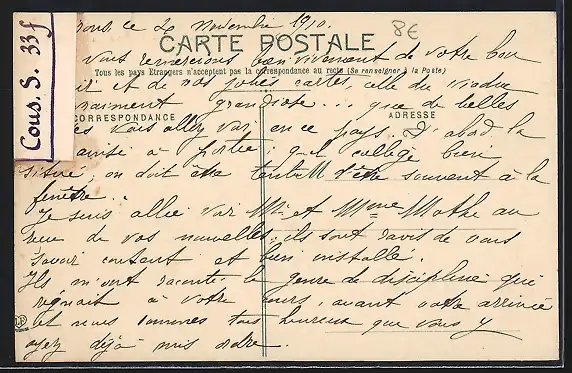 ce 20 Novembre 1910.
8€
CARTE POSTALE
vous remercions bien vivement de votre bon
Tous les pays Etrangers n'acceptent pas la correspondance au recto (Se renseigner à la Poste)
et de vos jolies cartes, celle du viaduc
vraiment grandiose... que de belles
CORRESPONDANCE
ADRESSE
vous allez voir en ce pays. D'abord la
à portée; quel collège bien
situé, on doit être d'être souvent à la
fenêtre.
Je suis allée voir Mr et Mme Mothe au
reçu de vos nouvelles; ils sont ravis de vous
savoir content et bien installé.
Ils m'ont raconté le genre de discipline qui
régnait à votre cours, avant votre arrivée
et nous sommes tous heureux que vous y
ayez déjà mis ordre.
Cous. S. 33f